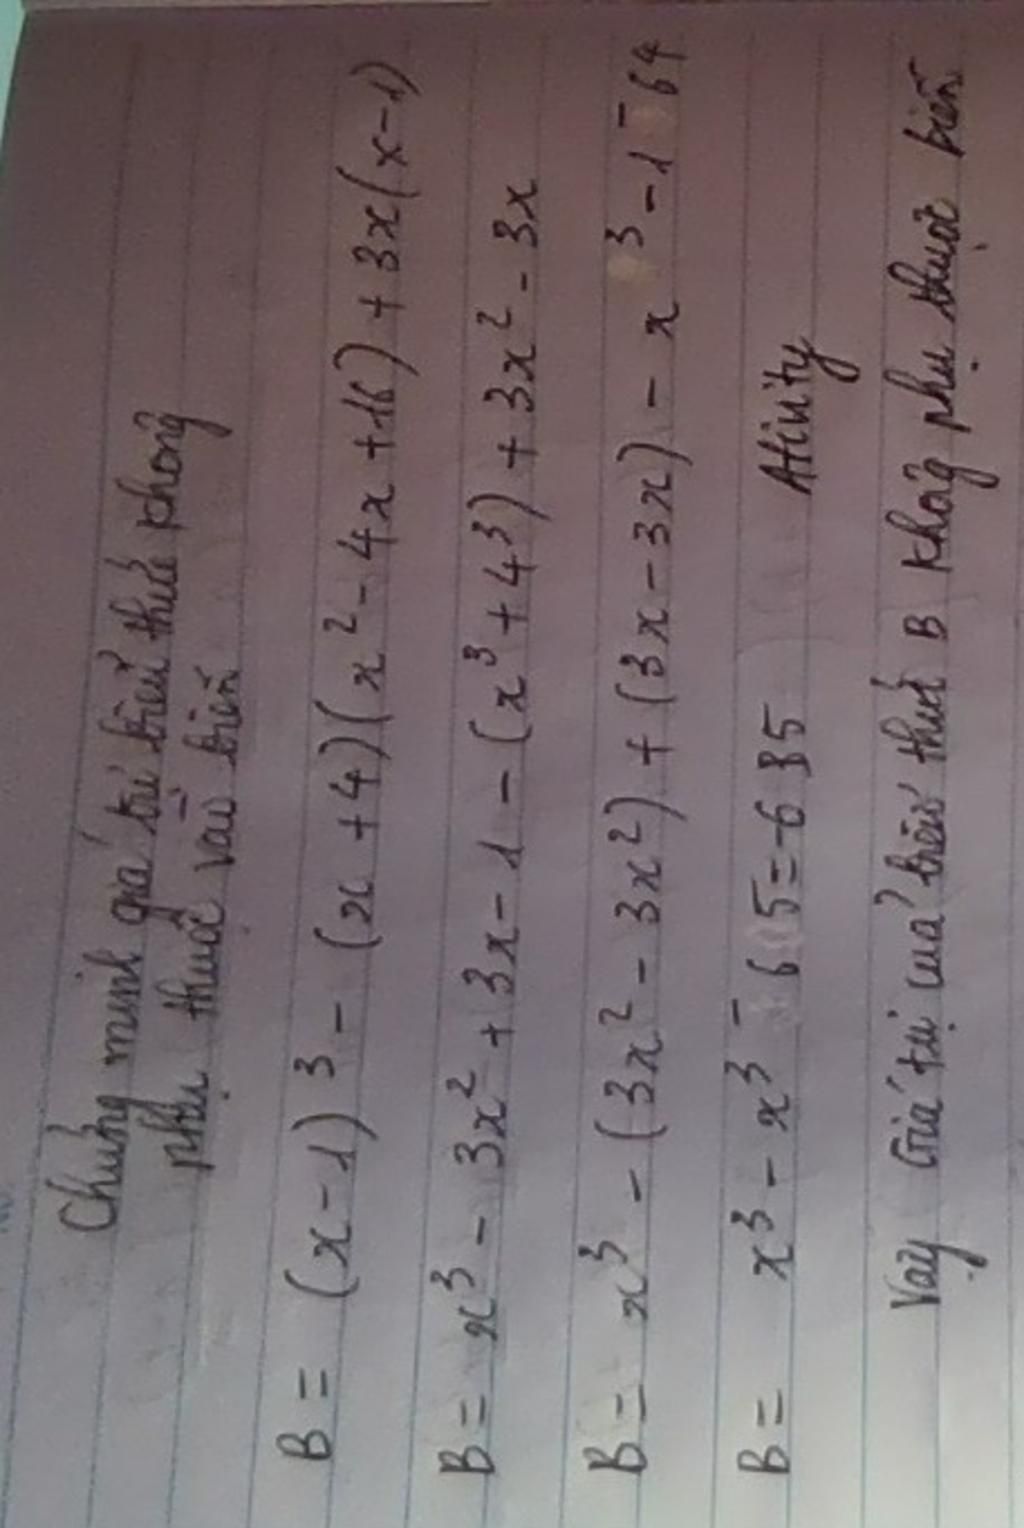 Chứng minh giá trị biểu thức không
phụ thuộc vào biến
B = (x-1)³ - (x+4)(x² - 4x + 16) + 3x(x-1)
B = x³ - 3x² + 3x - 1 - (x³ + 4³) + 3x² - 3x
B = x³ - (3x² - 3x²) + (3x - 3x) - x³ - 1 - 64
B = x³ - x³ - 65 = -6 Atinity
Vậy Giá trị của biểu thức B không phụ thuộc biến